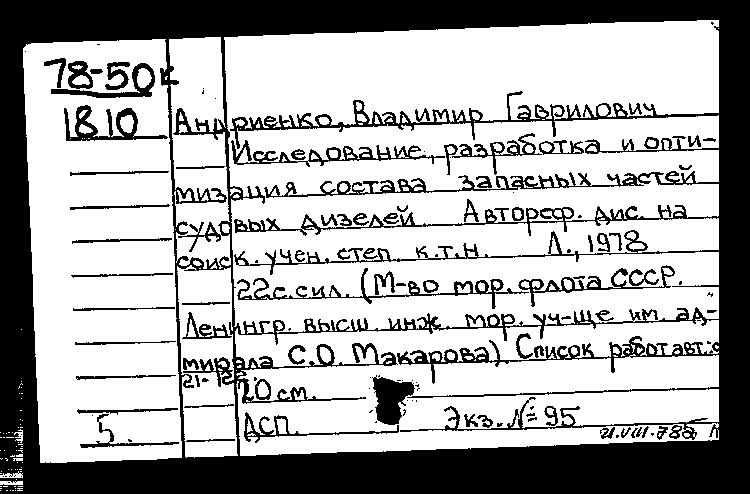 78-50к
1810
Андриенко, Владимир Гаврилович
Исследование, разработка и опти-
мизация состава запасных частей
судовых дизелей Автореф. дис. на
соиск. учен. степ. к.т.н. Л., 1978
22с. с ил. (М-во мор. флота СССР.
Ленингр. высш. инж. мор. уч-ще им. ад-
мирала С.О. Макарова). Список работ авт.: с
20 см.
5. ДСП. Экз. № 95